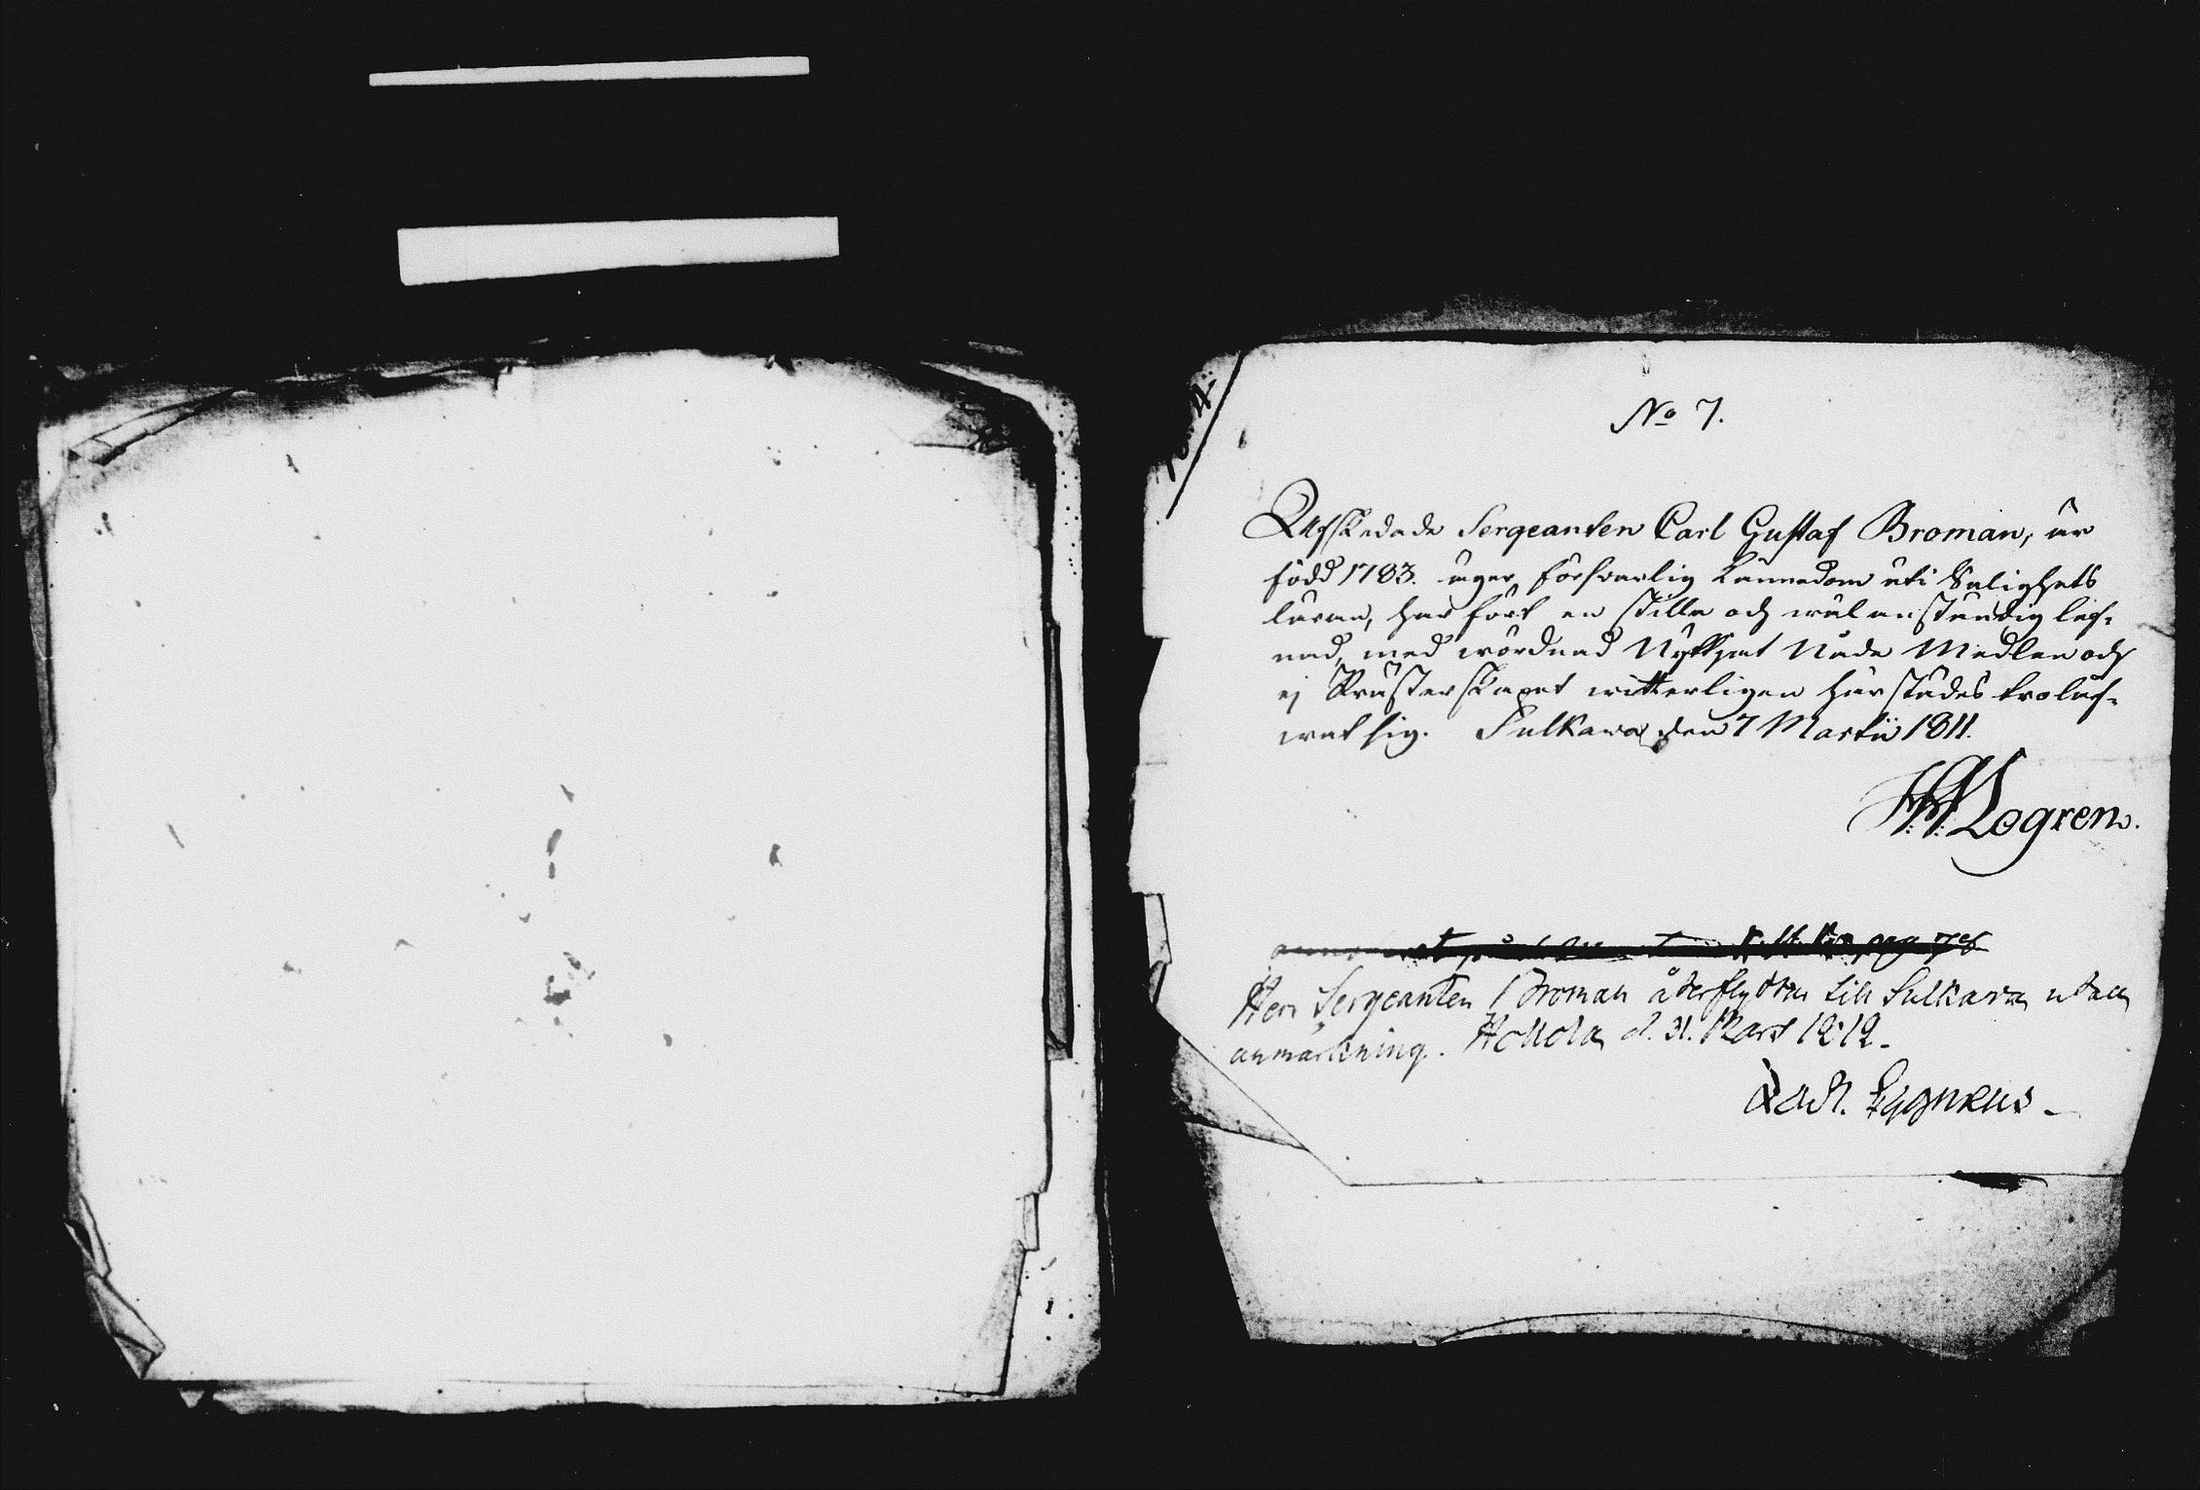 No 7.
Afskedade Sergeanten Carl Gustaf Broman, är
född 1783. äger försvarlig kännedom uti Salighets
läran, har fört en stilla och wälanständig lef-
nad, med wördnad Nyttjat Nåde Medlen och
ej Äktenskapet witterligen härstädes trolof-
wat sig. Sulkava den 7 Martii 1811.
Logren.
Herr Sergeanten Broman återflyttar till Sulkava utan
anmärkning. Hollola d. 31. Mars 1812.
Zach. Cygnæus